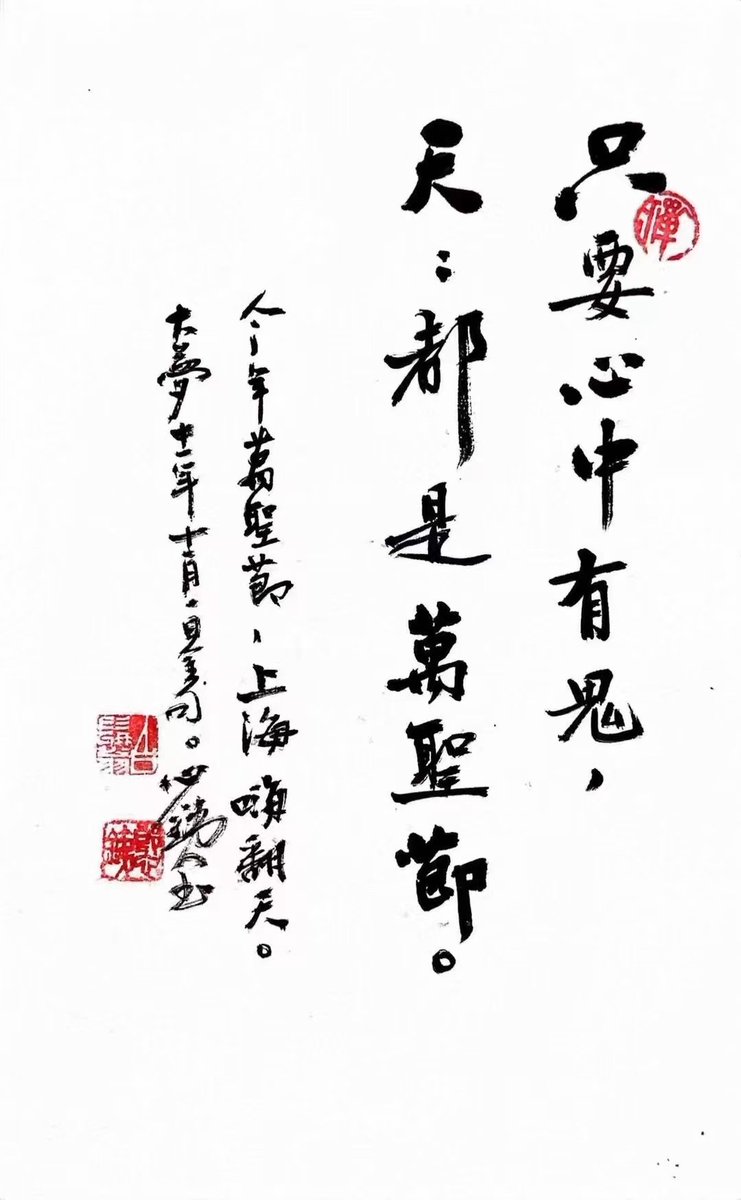 只要心中有鬼，
天：都是萬聖節。
今年萬聖節、上海嗨翻天。
大夢十一年十一月一日美ロ。心鏽人书